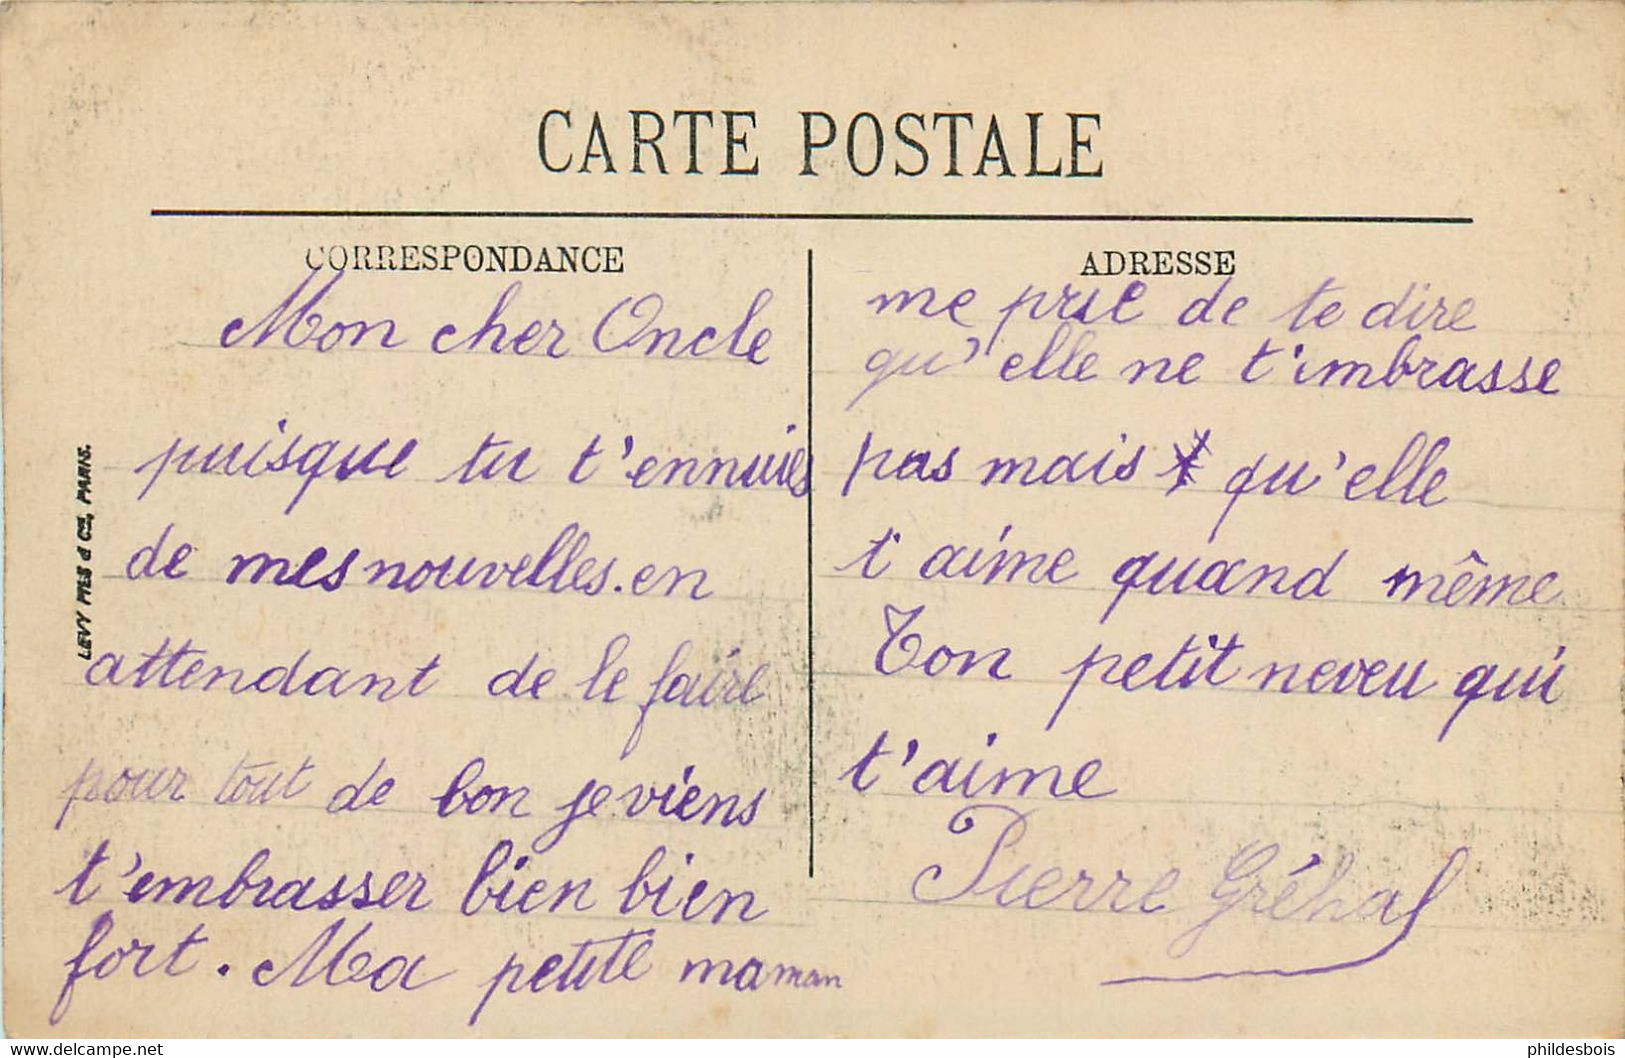 CARTE POSTALE
CORRESPONDANCE
Mon cher Oncle
puisque tu t'ennuies
de mes nouvelles. en
attendant de le faire
pour tout de bon je viens
t'embrasser bien bien
fort. Ma petite maman
ADRESSE
me prie de te dire
qu'elle ne t'imbrasse
pas mais qu'elle
t'aime quand même
Ton petit neveu qui
t'aime
Pierre Gréhal
LEVY FILS & CIE, PARIS.
phildesbois